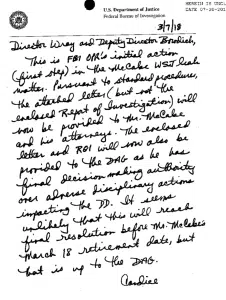 HEREIN IS UNCL
DATE 07-30-201
U.S. Department of Justice
Federal Bureau of Investigation
3/7/18
Director Wray and Deputy Director Bowdich,
This is FBI OPR's initial action
(first step) in the McCabe WSJ leak
matter. Pursuant to standard procedure,
the attached letter (but not the
enclosed Report of Investigation) will
now be provided to Mr. McCabe
and his attorneys. The enclosed
letter and ROI will now also be
provided to the DAG as he has
final decision making authority
over adverse disciplinary actions
impacting the DD. It seems
unlikely that this will reach
final resolution before Mr. McCabe's
March 18 retirement date, but
that is up to the DAG.
Candice